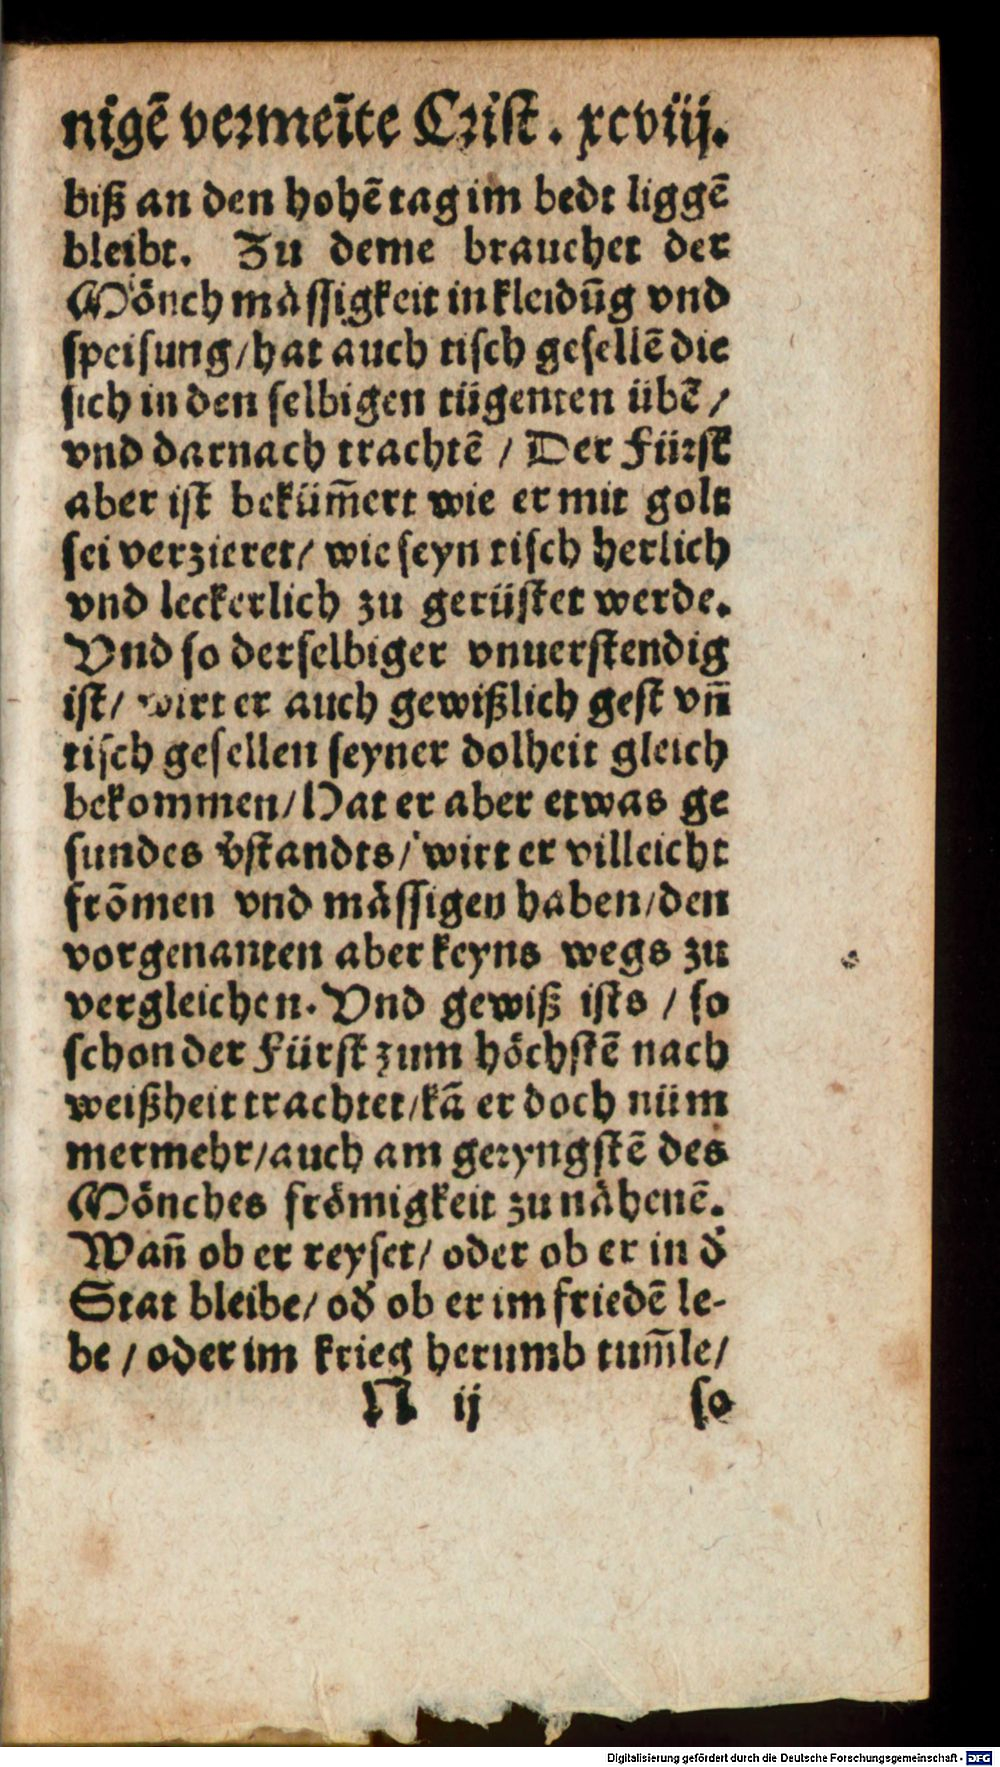 nigē vermeīte Crist. xcviij.
biß an den hohē tag im bedt liggē
bleibt. Zu deme brauchet der
Mönch mässigkeit in kleidūg vnd
speisung/hat auch tisch gesellē die
sich in den selbigen tügenten übē/
vnd darnach trachtē / Der Fürst
aber ist bekūm̄ert wie er mit golt
sei verzieret/ wie seyn tisch herlich
vnd leckerlich zu gerüstet werde.
Vnd so derselbiger vnuerstendig
ist/ wirt er auch gewißlich gest vn̄
tisch gesellen seyner dolheit gleich
bekommen/Hat er aber etwas ge
sundes v̓standts/ wirt er villeicht
frōmen vnd mässigen haben/den
vorgenanten aber keyns wegs zu
vergleichen. Vnd gewiß ists / so
schon der Fürst zum höchstē nach
weißheit trachtet/kā er doch nüm
mermehr/auch am geryngstē des
Mönches frömigkeit zu nähenē.
Wan̄ ob er reyset/ oder ob er in d̓
Stat bleibe/ od̓ ob er im friedē le-
be / oder im krieg herumb tum̄le/
N ij so
Digitalisierung gefördert durch die Deutsche Forschungsgemeinschaft - DFG